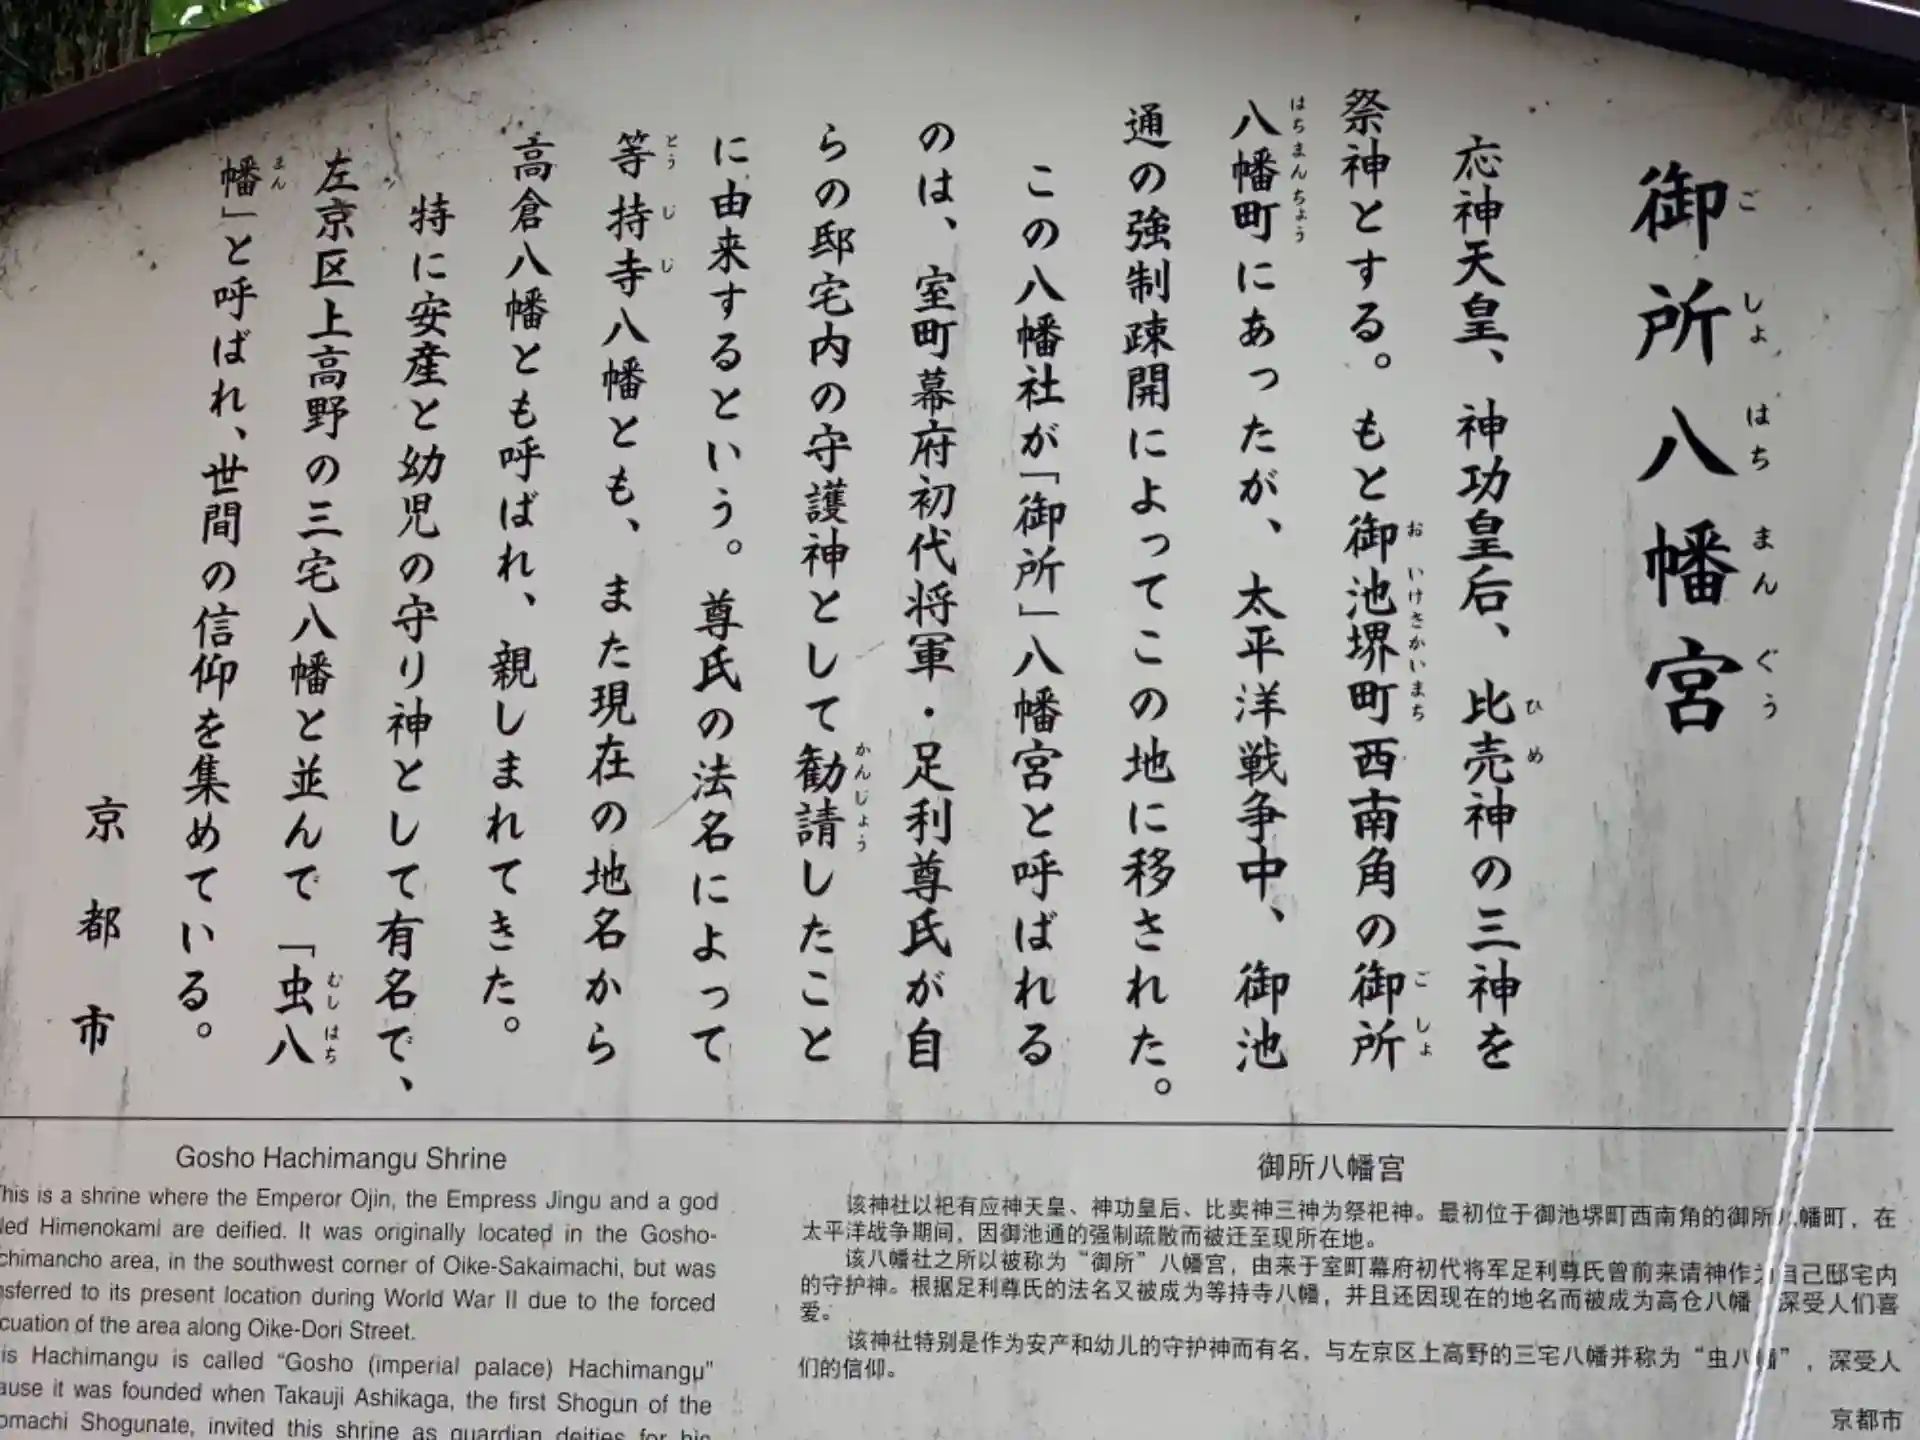 御所八幡宮
応神天皇、神功皇后、比売神の三神を
祭神とする。もと御池堺町西南角の御所
八幡町にあったが、太平洋戦争中、御池
通の強制疎開によってこの地に移された。
この八幡社が「御所」八幡宮と呼ばれる
のは、室町幕府初代将軍・足利尊氏が自
らの邸宅内の守護神として勧請したこと
に由来するという。尊氏の法名によって
等持寺八幡とも、また現在の地名から
高倉八幡とも呼ばれ、親しまれてきた。
特に安産と幼児の守り神として有名で、
左京区上高野の三宅八幡と並んで「虫八
幡」と呼ばれ、世間の信仰を集めている。
京都市
Gosho Hachimangu Shrine
This is a shrine where the Emperor Ojin, the Empress Jingu and a god
Himenokami are deified. It was originally located in the Gosho-
chimancho area, in the southwest corner of Oike-Sakaimachi, but was
sferred to its present location during World War II due to the forced
cuation of the area along Oike-Dori Street.
is Hachimangu is called “Gosho (imperial palace) Hachimangu”
ause it was founded when Takauji Ashikaga, the first Shogun of the
omachi Shogunate, invited this shrine as guardian deities for his
御所八幡宮
该神社以祀有应神天皇、神功皇后、比卖神三神为祭祀神。最初位于御池堺町西南角的御所八幡町，在
太平洋战争期间，因御池通的强制疏散而被迁至现所在地。
该八幡社之所以被称为“御所”八幡宫，由来于室町幕府初代将军足利尊氏曾前来请神作为自己邸宅内
的守护神。根据足利尊氏的法名又被成为等持寺八幡，并且还因现在的地名而被成为高仓八幡，深受人们喜
爱。
该神社特别是作为安产和幼儿的守护神而有名，与左京区上高野的三宅八幡并称为“虫八幡”，深受人
们的信仰。
京都市